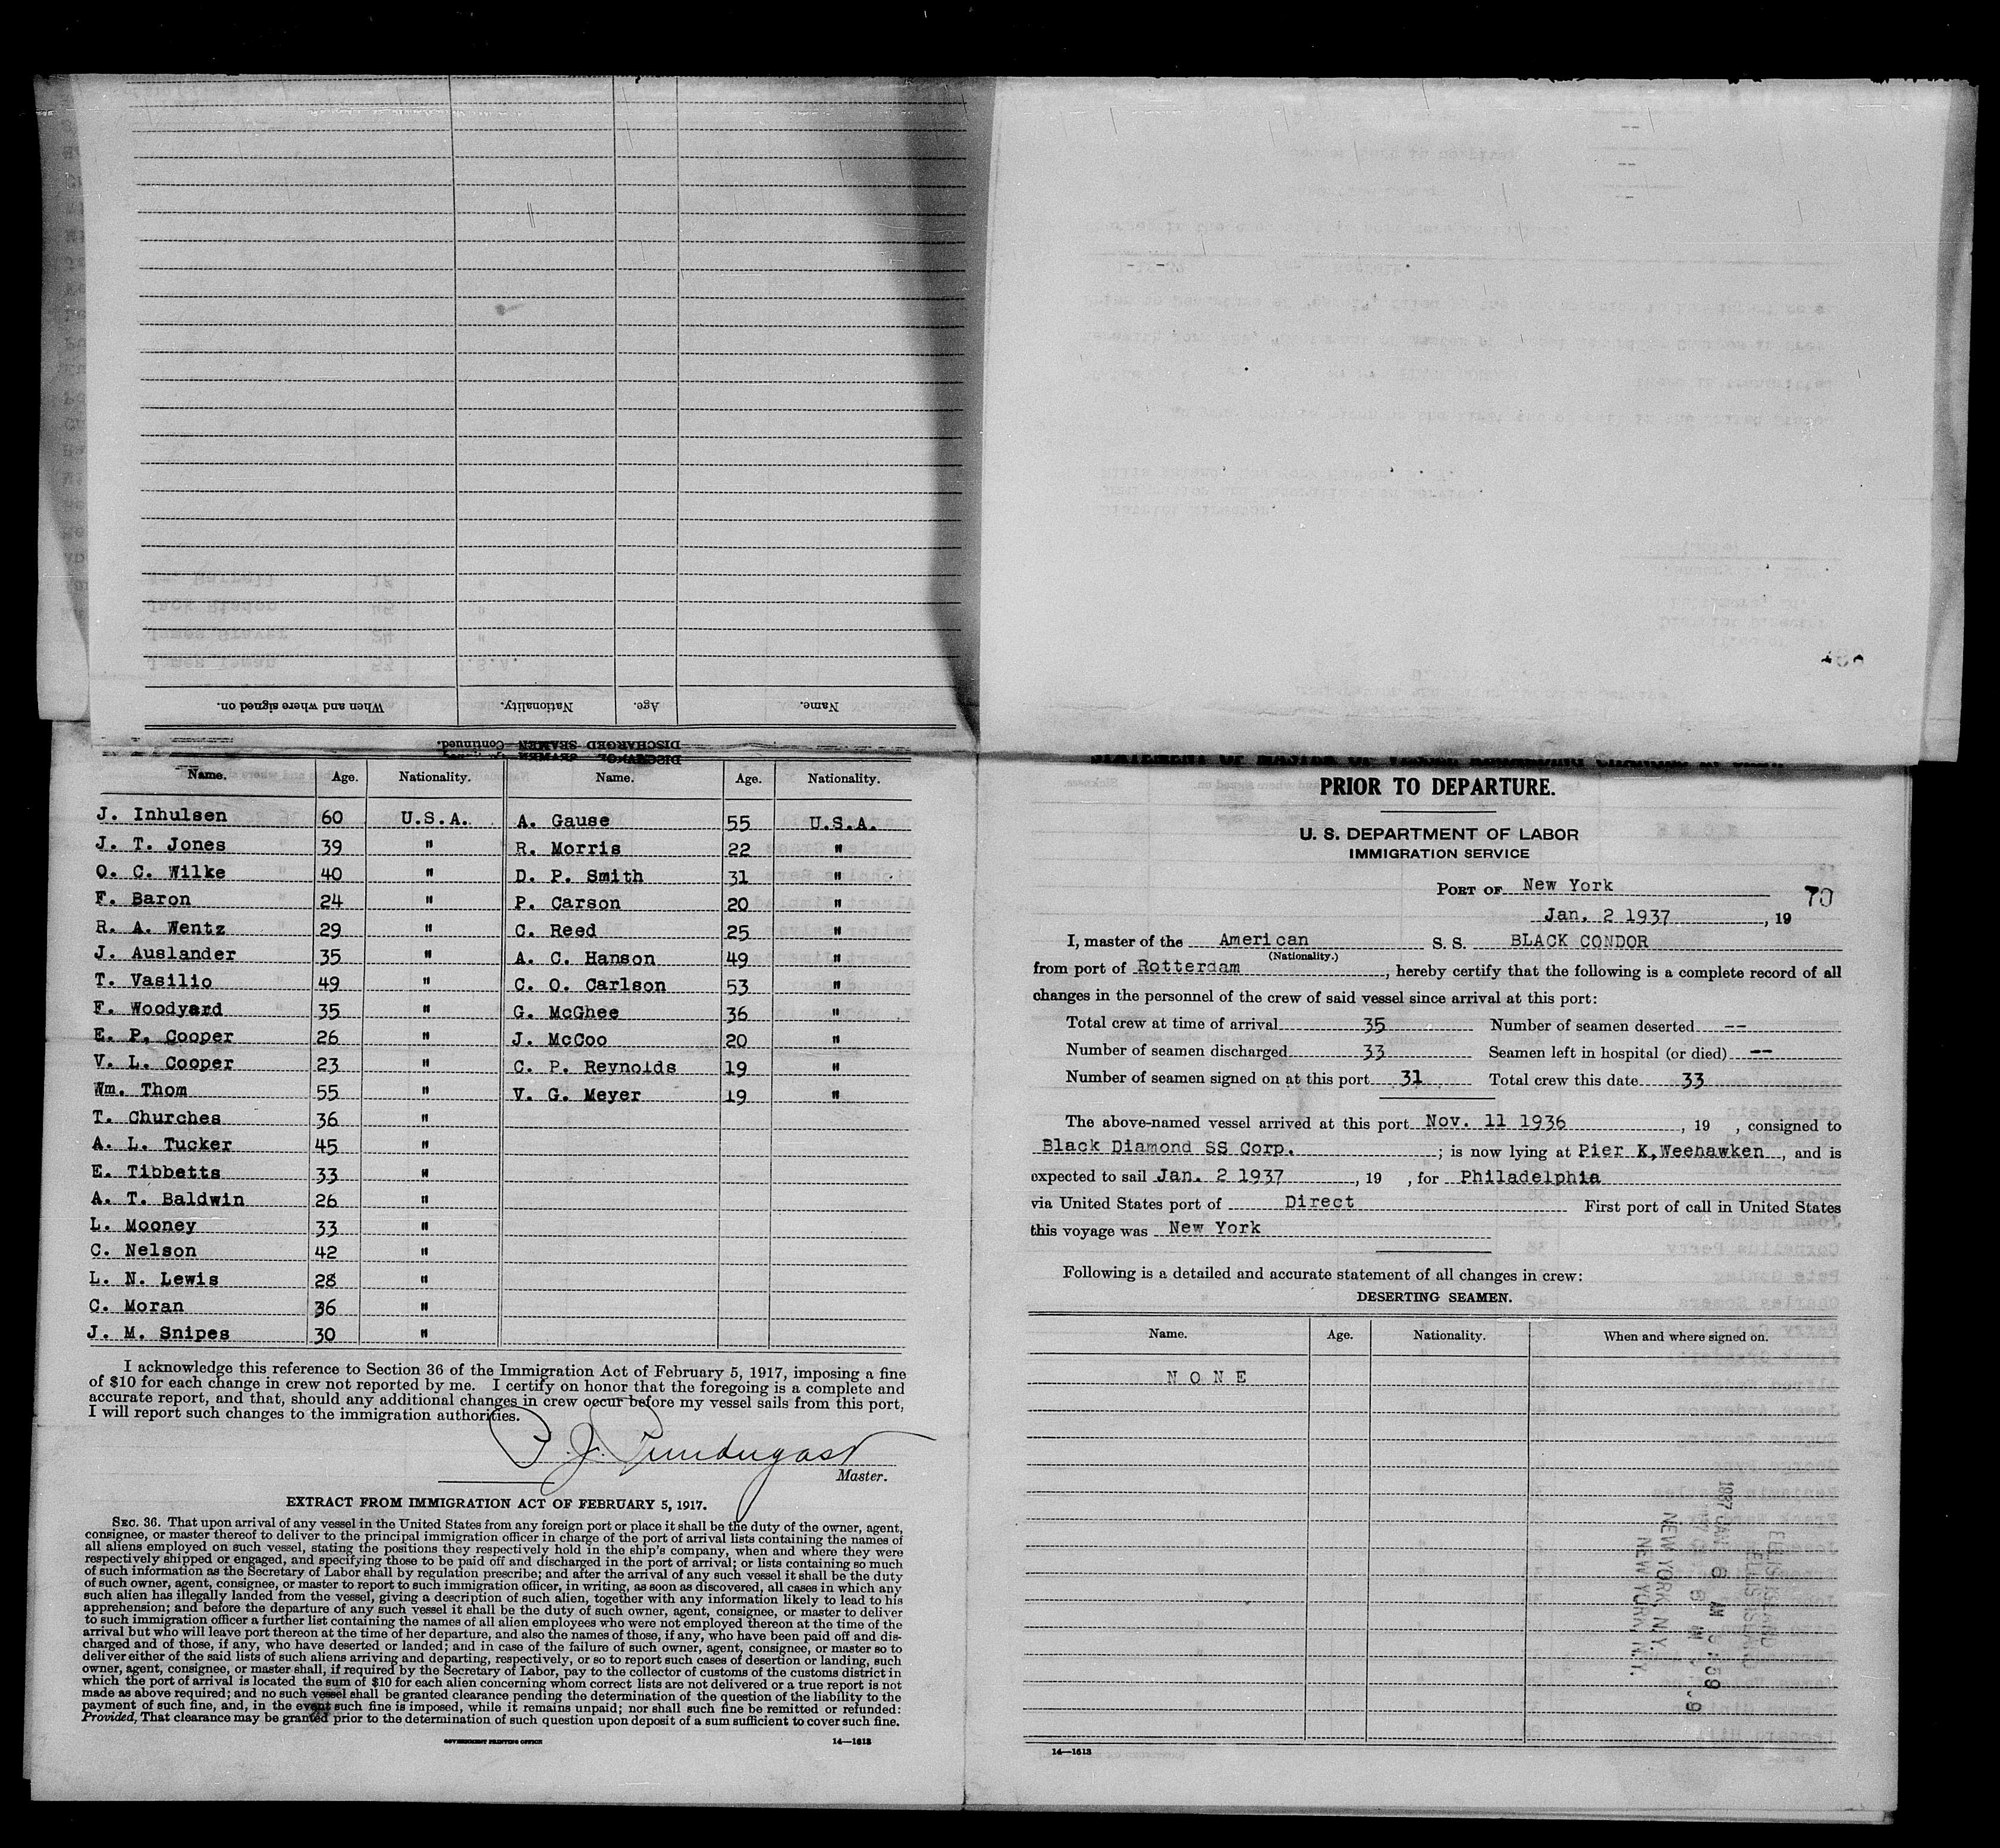 When and where signed on.
Nationality.
Age.
Name.
DISCHARGED SEAMEN—Continued.
Name. Age. Nationality. Name. Age. Nationality.
J. Inhulsen 60 U.S.A. A. Gause 55 U.S.A.
J. T. Jones 39 " R. Morris 22 "
O. C. Wilke 40 " D. P. Smith 31 "
F. Baron 24 " P. Carson 20 "
R. A. Wentz 29 " C. Reed 25 "
J. Auslander 35 " A. C. Hanson 49 "
T. Vasilio 49 " C. O. Carlson 53 "
F. Woodyard 35 " G. McGhee 36 "
E. P. Cooper 26 " J. McCoo 20 "
V. L. Cooper 23 " C. P. Reynolds 19 "
Wm. Thom 55 " V. G. Meyer 19 "
T. Churches 36 "
A. L. Tucker 45 "
E. Tibbetts 33 "
A. T. Baldwin 26 "
L. Mooney 33 "
C. Nelson 42 "
L. N. Lewis 28 "
C. Moran 36 "
J. M. Snipes 30 "
I acknowledge this reference to Section 36 of the Immigration Act of February 5, 1917, imposing a fine
of $10 for each change in crew not reported by me. I certify on honor that the foregoing is a complete and
accurate report, and that, should any additional changes in crew occur before my vessel sails from this port,
I will report such changes to the immigration authorities.
Master.
EXTRACT FROM IMMIGRATION ACT OF FEBRUARY 5, 1917.
SEC. 36. That upon arrival of any vessel in the United States from any foreign port or place it shall be the duty of the owner, agent,
consignee, or master thereof to deliver to the principal immigration officer in charge of the port of arrival lists containing the names of
all aliens employed on such vessel, stating the positions they respectively hold in the ship's company, when and where they were
respectively shipped or engaged, and specifying those to be paid off and discharged in the port of arrival; or lists containing so much
of such information as the Secretary of Labor shall by regulation prescribe; and after the arrival of any such vessel it shall be the duty
of such owner, agent, consignee, or master to report to such immigration officer, in writing, as soon as discovered, all cases in which any
such alien has illegally landed from the vessel, giving a description of such alien, together with any information likely to lead to his
apprehension; and before the departure of any such vessel it shall be the duty of such owner, agent, consignee, or master to deliver
to such immigration officer a further list containing the names of all alien employees who were not employed thereon at the time of the
arrival but who will leave port thereon at the time of her departure, and also the names of those, if any, who have been paid off and dis-
charged and of those, if any, who have deserted or landed; and in case of the failure of such owner, agent, consignee, or master so to
deliver either of the said lists of such aliens arriving and departing, respectively, or so to report such cases of desertion or landing, such
owner, agent, consignee, or master shall, if required by the Secretary of Labor, pay to the collector of customs of the customs district in
which the port of arrival is located the sum of $10 for each alien concerning whom correct lists are not delivered or a true report is not
made as above required; and no such vessel shall be granted clearance pending the determination of the question of the liability to the
payment of such fine, and, in the event such fine is imposed, while it remains unpaid; nor shall such fine be remitted or refunded:
Provided, That clearance may be granted prior to the determination of such question upon deposit of a sum sufficient to cover such fine.
GOVERNMENT PRINTING OFFICE 14—1613
PRIOR TO DEPARTURE.
U. S. DEPARTMENT OF LABOR
IMMIGRATION SERVICE
PORT OF New York
70
Jan. 2 1937, 19
I, master of the American S. S. BLACK CONDOR
(Nationality.)
from port of Rotterdam, hereby certify that the following is a complete record of all
changes in the personnel of the crew of said vessel since arrival at this port:
Total crew at time of arrival 35 Number of seamen deserted --
Number of seamen discharged 33 Seamen left in hospital (or died) --
Number of seamen signed on at this port 31 Total crew this date 33
The above-named vessel arrived at this port Nov. 11 1936, 19 , consigned to
Black Diamond SS Corp. ; is now lying at Pier K, Weehawken, and is
expected to sail Jan. 2 1937, 19 , for Philadelphia
via United States port of Direct First port of call in United States
this voyage was New York
Following is a detailed and accurate statement of all changes in crew:
DESERTING SEAMEN.
Name. Age. Nationality. When and where signed on.
NONE
ELLIS ISLAND
1937 JAN 6 AM
NEW YORK N.Y.
14—1613